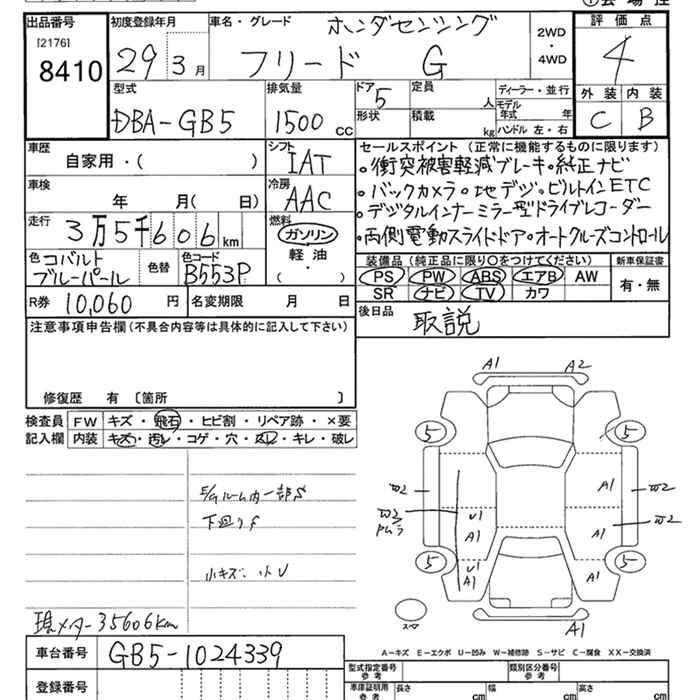 出品番号
[2176]
8410
初度登録年月
29年3月
車名・グレード
ホンダセンシング
フリード G
2WD
・
4WD
評価点
4
外装 内装
C B
型式
DBA-GB5
排気量
1500 CC
ドア
5
定員
人
形状
積載
kg
ディーラー・並行
モデル年式 年
ハンドル 左・右
車歴
自家用・( )
シフト
IAT
車検
年 月( 日)
冷房
AAC
走行
3万5千606km
燃料
ガソリン
軽油
・
( )
色 コバルトブルーパール
色替
色コード
B553P
R券 10,060 円
名変期限 月 日
セールスポイント (正常に機能するものに限ります)
。衝突被害軽減ブレーキ。純正ナビ
。バックカメラ。地デジ。ビルトインETC
。デジタルインナーミラー型ドライブレコーダー
。両側電動スライドドア。オートクルーズコントロール
装備品 (純正品に限り○をつけてください)
新車保証書
PS PW ABS エアB AW
SR ナビ TV カワ
有・無
後日品
取説
注意事項申告欄(不具合内容等は具体的に記入して下さい)
修復歴 有 〔箇所 〕
検査員記入欄
FW キズ・飛石・ヒビ割・リペア跡・×要
内装 キズ・汚レ・コゲ・穴・スレ・キレ・破レ
下廻りS
小キズ、小U
現メーター35606km
車台番号 GB5-1024339
登録番号
A1 A2
5 5
W2 A1 W2
W2 U1 A1 W2
A1
U1
A1 A1
5 5
スペア
A1
A-キズ E-エクボ U-凹み W-補修跡 S-サビ C-腐食 XX-交換済
型式指定番号
参考
類別区分番号
参考
車庫証明用
参考
長さ cm
幅 cm
高さ cm